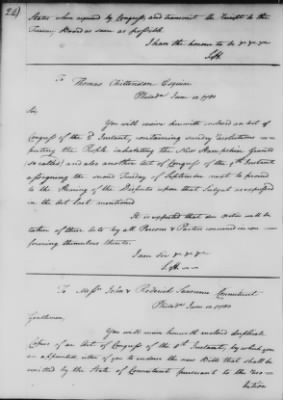 22)
States when required by Congress, and transmit the Receipt to the
Treasury Board as soon as possible.
I have the honour to be &c &c &c
S.H.
To Thomas Chittenden Esquire
Philada June 12 1780
Sir,
You will receive herewith enclosed an Act of
Congress of the 2d Instant, containing sundry resolutions res-
pecting the People inhabiting the New Hampshire Grants
(so called) and also another Act of Congress of the 9th Instant
assigning the second Tuesday of September next to proceed
to the Hearing of the Disputes upon that Subject as expressed
in the Act last mentioned
It is expected that due Notice will be
taken of these Acts by all Persons & Parties concerned in con-
forming themselves thereto.
I am Sir &c &c &c
S.H.
To Messrs John & Roderick Lawrence Connecticut
Philada June 12 1780
Gentlemen,
You will receive herewith enclosed duplicate
Copies of an Act of Congress of the 8th Instant, by which you
are appointed, either of you to endorse the new Bills that shall be
emitted by the State of Connecticut pursuant to the reso-
lution